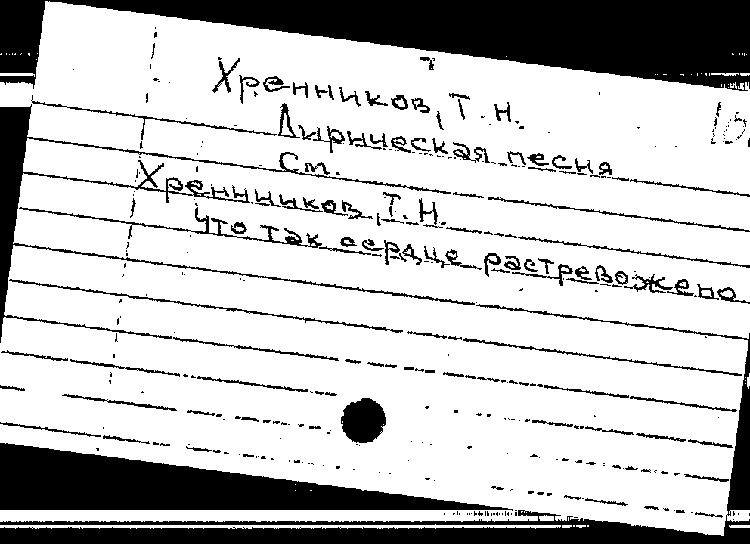 Хренников, Т. Н.
Лирическая песня
См.
Хренников, Т. Н.
Что так сердце растревожено